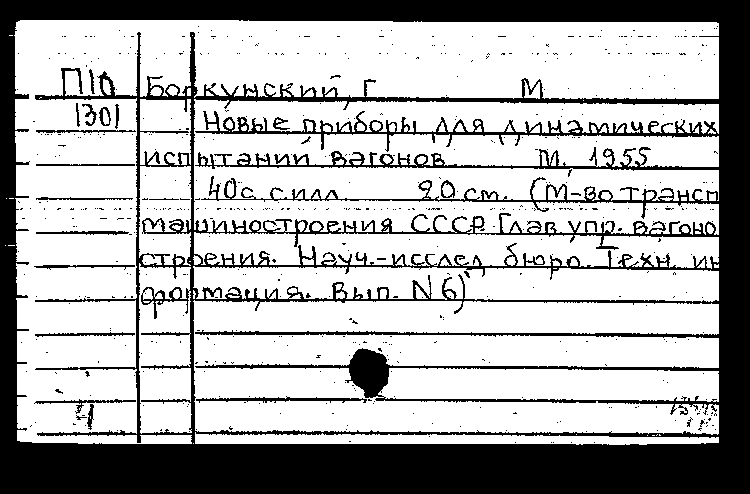 П10 Боркунский, Г М
1301 Новые приборы для динамических
испытаний вагонов. М., 1955
40с. с илл. 20 см. (М-во трансп
машиностроения СССР. Глав. упр. вагоно
строения. Науч.-исслед. бюро. Техн. ин
формация. Вып. N 6)
4